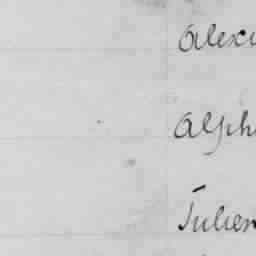 Alexi
Alph
Julien